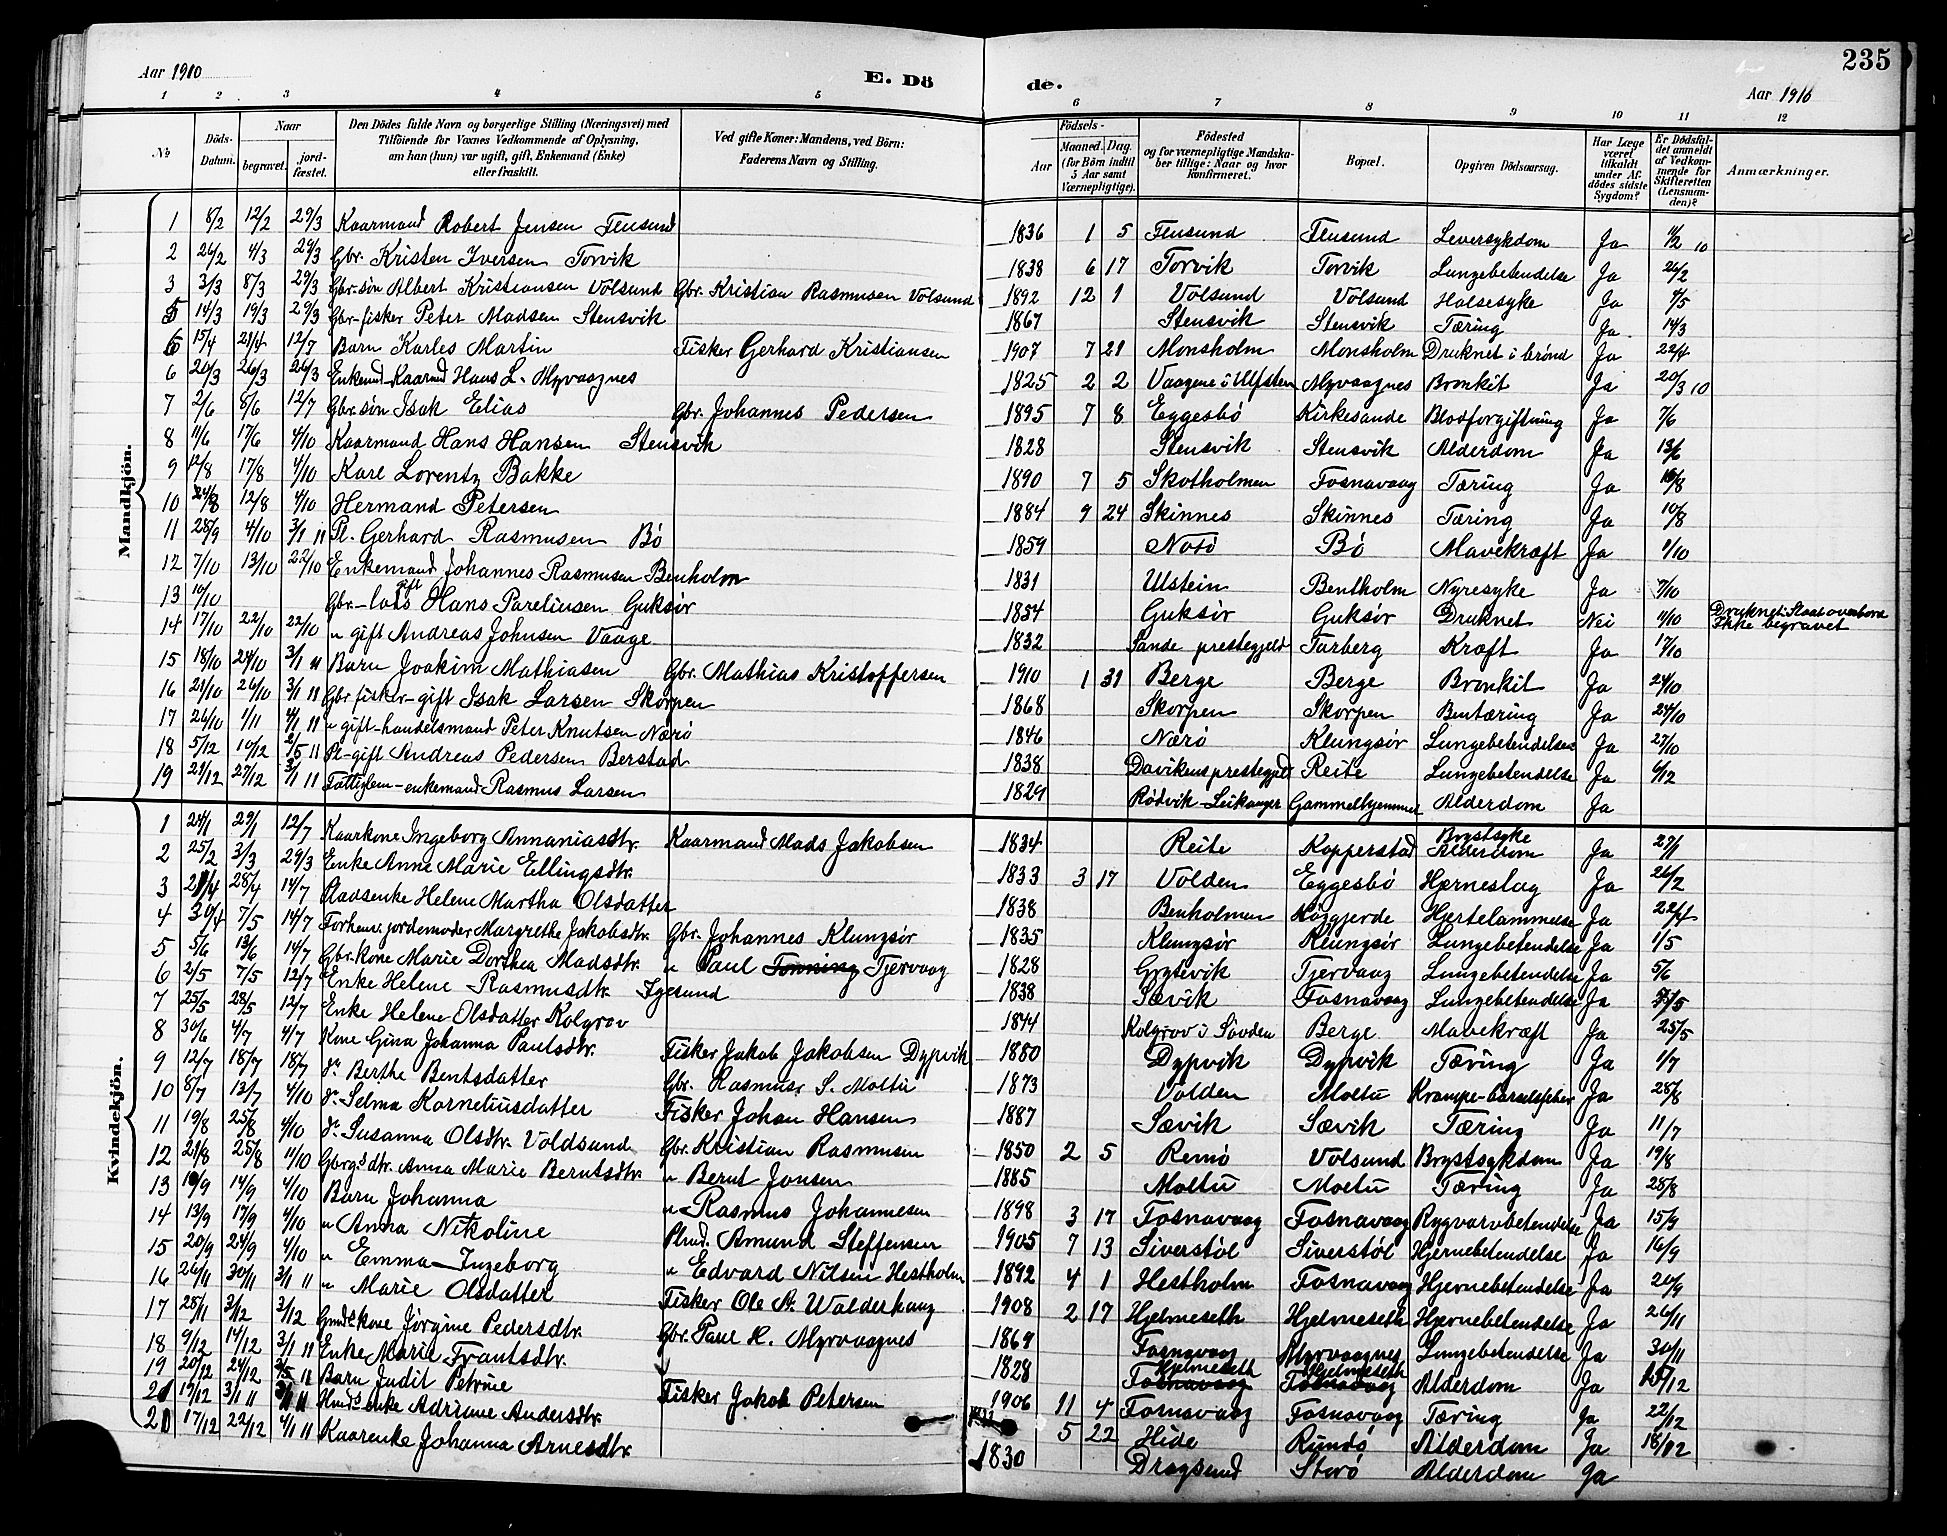 235
Aar 1910 E. Dö de. Aar 1910
1 2 3 4 5 6 7 8 9 10 11 12
№ Döds-Datum. Naar begravet. jord-fæstet. Den Dödes fulde Navn og borgerlige Stilling (Næringsvei) med Tilföiende for Voxnes Vedkommende af Oplysning, om han (hun) var ugift, gift, Enkemand (Enke) eller fraskilt. Ved gifte Koner: Mandens, ved Börn: Faderens Navn og Stilling. Födsels- Aar Maaned. Dag. (for Börn indtil 5 Aar samt Værnepligtige). Födested og for værnepligtige Mandska-ber tillige: Naar og hvor konfirmeret. Bopæl. Opgiven Dödsaarsag. Har Læge været tilkaldt under Af-dödes sidste Sygdom? Er Dödsfal-det anmeldt af Vedkom-mende for Skifteretten (Lensman-den)? Anmærkninger.
Mandkjön.
1 8/2 12/2 29/3 Kaarmand Robert Jensen Flusund 1836 1 5 Flusund Flusund Leversykdom Ja 11/2 10
2 26/2 4/3 29/3 Gbr. Kristen Iversen Torvik 1838 6 17 Torvik Torvik Lungebetendelse Ja 26/2
3 3/3 8/3 29/3 Gbr.søn Albert Kristiansen Volsund Gbr. Kristian Rasmusen Volsund 1892 12 1 Volsund Volsund Halsesyke Ja 4/5
5 14/3 19/3 29/3 Gbr-fisker Peter Madsen Stensvik 1867 Stensvik Stensvik Tæring Ja 14/3
6 15/4 21/4 12/7 Barn Karles Martin Fisker Gerhard Kristiansen 1907 7 21 Monsholm Monsholm Druknet i brønd Ja 22/4
6 20/3 26/3 26/3 Enkemd-Kaarmd Hans L. Myrvaagnes 1825 2 2 Vaagene i Ulfsten Myrvaagnes Bronkit Ja 20/3 10
7 2/6 8/6 12/7 Gbr.søn Isak Elias Gbr. Johannes Pedersen 1895 7 8 Eggesbø Kirkesande Blodforgiftning Ja 7/6
8 11/6 17/6 4/10 Kaarmand Hans Hansen Stensvik 1828 Stensvik Stensvik Alderdom Ja 13/6
9 12/8 17/8 4/10 Karl Lorentz Bakke 1890 7 5 Skotholmen Fosnavaag Tæring Ja
10 12/8 4/10 Hermand Petersen 1884 9 24 Skinnes Skinnes Tæring Ja 10/8
11 28/9 4/10 3/1 11 Pl. Gerhard Rasmusen Bø 1859 Notø Bø Mavekræft Ja 1/10
12 7/10 13/10 22/10 Enkemand Johannes Rasmusen Benholm 1831 Ulstein Bentholm Nyresyke Ja 7/10
13 10/10 Gbr-lods gift Hans Pareliusen Guksør 1854 Guksør Guksør Druknet Nei 11/10 Druknet. Slaat overbord Ikke begravet
14 17/10 22/10 22/10 " gift Andreas Johnsen Vaage 1832 Sande prestegjeld Tarberg Kræft Ja 17/10
15 18/10 24/10 3/1 11 Barn Joakim Mathiasen Gbr. Mathias Kristoffersen 1910 1 31 Berge Berge Bronkit Ja 24/10
16 21/10 26/10 3/1 11 Gbr fisker-gift Isak Larsen Skorpen 1868 Skorpen Skorpen Bentæring Ja 24/10
17 26/10 1/11 4/1 11 " gift-handelsmand Peter Knutsen Nærø 1846 Nærø Klungsør Lungebetendelse Ja 27/10
18 5/12 10/12 2/5 11 Pl-gift Andreas Pedersen Berstad 1838 Davikens prestegjeld Reite Lungebetendelse Ja 6/12
19 21/12 27/12 3/1 11 Fattiglem-enkemand Rasmus Larsen 1829 Rødvik-Leikanger Gammelhjemmet Alderdom Ja
Kvindekjön.
1 24/1 29/1 12/7 Kaarkone Ingeborg Annaniasdtr. Kaarmand Mads Jakobsen 1834 Reite Kopperstad Brystsyke Alderdom Ja 27/1
2 25/2 3/3 29/3 Enke Anne Marie Ellingsdtr. 1833 3 17 Volden Eggesbø Hjerneslag Ja 26/2
3 21/4 28/4 14/7 Pladsenke Helene Martha Olsdatter 1838 Benholmen Høggjerde Hjertelammelse Ja 22/4
4 30/4 7/5 14/7 Forhenv. jordemoder Margrethe Jakobsdtr. Gbr. Johannes Klungsør 1835 Klungsør Klungsør Lungebetendelse Ja 1/5
5 5/6 13/6 14/7 Gbr.kone Marie Dorthea Madsdtr. " Paul Tonning Tjervaag 1828 Grytevik Tjervaag Lungebetendelse Ja 5/6
6 2/5 7/5 12/7 Enke Helene Rasmusdtr. Igesund 1838 Sævik Fosnavaag Lungebetendelse Ja
7 25/5 28/5 12/7 Enke Helene Olsdatter Kolgrov 1844 Kolgrov i Søvden Berge Mavekræft Ja 25/5
8 30/6 4/7 4/7 Kone Gina Johanna Paulsdtr. Fisker Jakob Jakobsen Dypvik 1880 Dypvik Dypvik Tæring Ja 1/7
9 12/7 18/7 18/7 d° Berthe Bentsdatter Gbr. Rasmus S. Moltu 1873 Volden Moltu Krampe-barselsfeber Ja 28/8
10 8/7 13/7 4/10 d° Selma Korneliusdatter Fisker Johan Hansen 1887 Sævik Sævik Tæring Ja 11/7
11 19/8 25/8 4/10 d° Susanna Olsdtr. Voldsund Gbr. Kristian Rasmusen 1850 2 5 Remø Volsund Brystsykdom Ja 19/8
12 21/8 25/8 4/10 Gbrgsdtr. Anna Marie Berntsdtr. " Bernt Jonsen 1885 Moltu Moltu Tæring Ja 25/8
13 10/9 14/9 4/10 Barn Johanna " Rasmus Johannesen 1898 3 17 Fosnavaag Fosnavaag Rygvarvbetendelse Ja 15/9
14 13/9 17/9 4/10 " Anna Nikoline Plmd. Amund Steffensen 1905 7 13 Siverstøl Siverstøl Hjernebetendelse Ja 16/9
15 20/9 24/9 4/10 " Emma-Ingeborg " Edvard Nilsen Hestholm 1892 4 1 Hestholm Fosnavaag Hjernebetendelse Ja 20/9
16 26/11 30/11 3/1 11 " Marie Olsdatter Fisker Ole A. Walderhaug 1908 2 17 Hjelmeseth Hjelmeseth Hjernebetendelse Ja 26/11
17 28/11 3/12 3/12 Gmds kone Jørgine Pedersdtr. Gbr. Paul K. Myrvaagnes 1869 Fosnavaag Myrvaagnes Lungebetendelse Ja 30/11
18 9/12 14/12 3/1 11 Enke Marie Frantsdtr. 1828 Hjelmeseth Fosnavaag Hjelmeseth Fosnavaag Alderdom Ja
19 20/12 24/12 2/5 11 Barn Judit Petrine Fisker Jakob Petersen 1906 11 4 Fosnavaag Fosnavaag Tæring Ja 22/12
20 19/12 3/1 11 3/1 11 enke Adriane Andersdtr. 5 22 Hide Rundø Alderdom Ja 18/12
21 17/12 22/12 4/1 11 Kaarenke Johanna Arnesdtr. 1830 Dragsund Storø Alderdom Ja